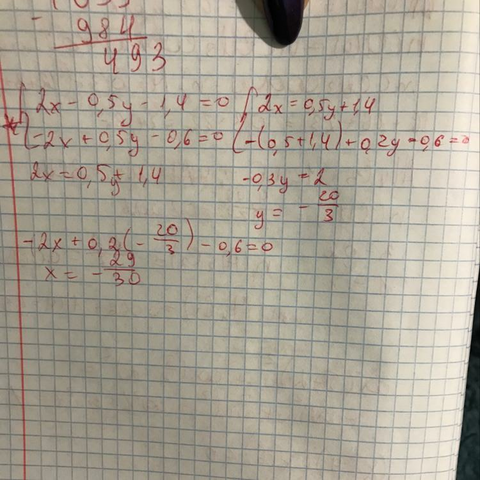 984
493
2x - 0,5y - 1,4 = 0
2x = 0,5y + 1,4
-2x + 0,5y - 0,6 = 0
-(0,5 + 1,4) + 0,2y - 0,6 = 0
2x = 0,5y + 1,4
-0,3y = 2
y = - 20/3
-2x + 0,2(- 20/3) - 0,6 = 0
x = - 29/30